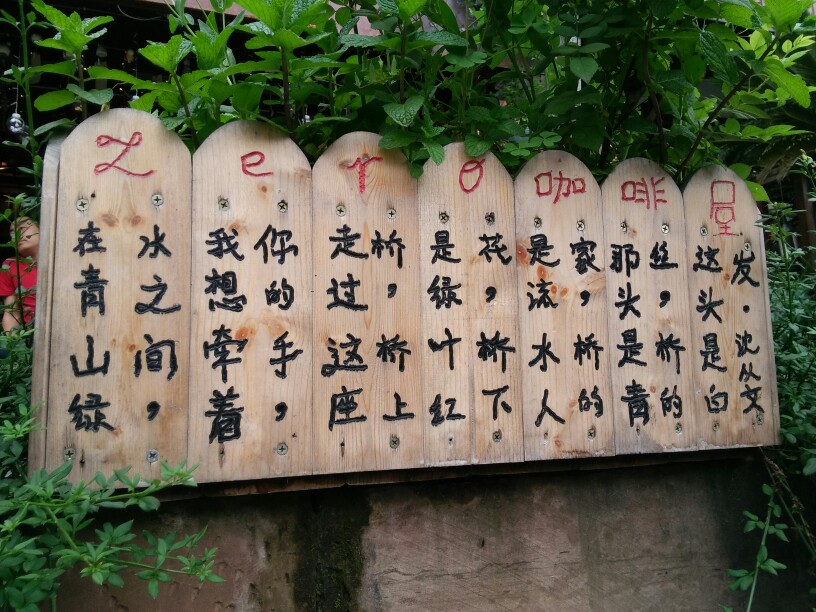 Zero咖啡屋
在青山绿
水之间，
我想牵着
你的手，
走过这座
桥，桥上
是绿叶红
花，桥下
是流水人
家，桥的
那头是青
丝，桥的
这头是白
发。沈从文